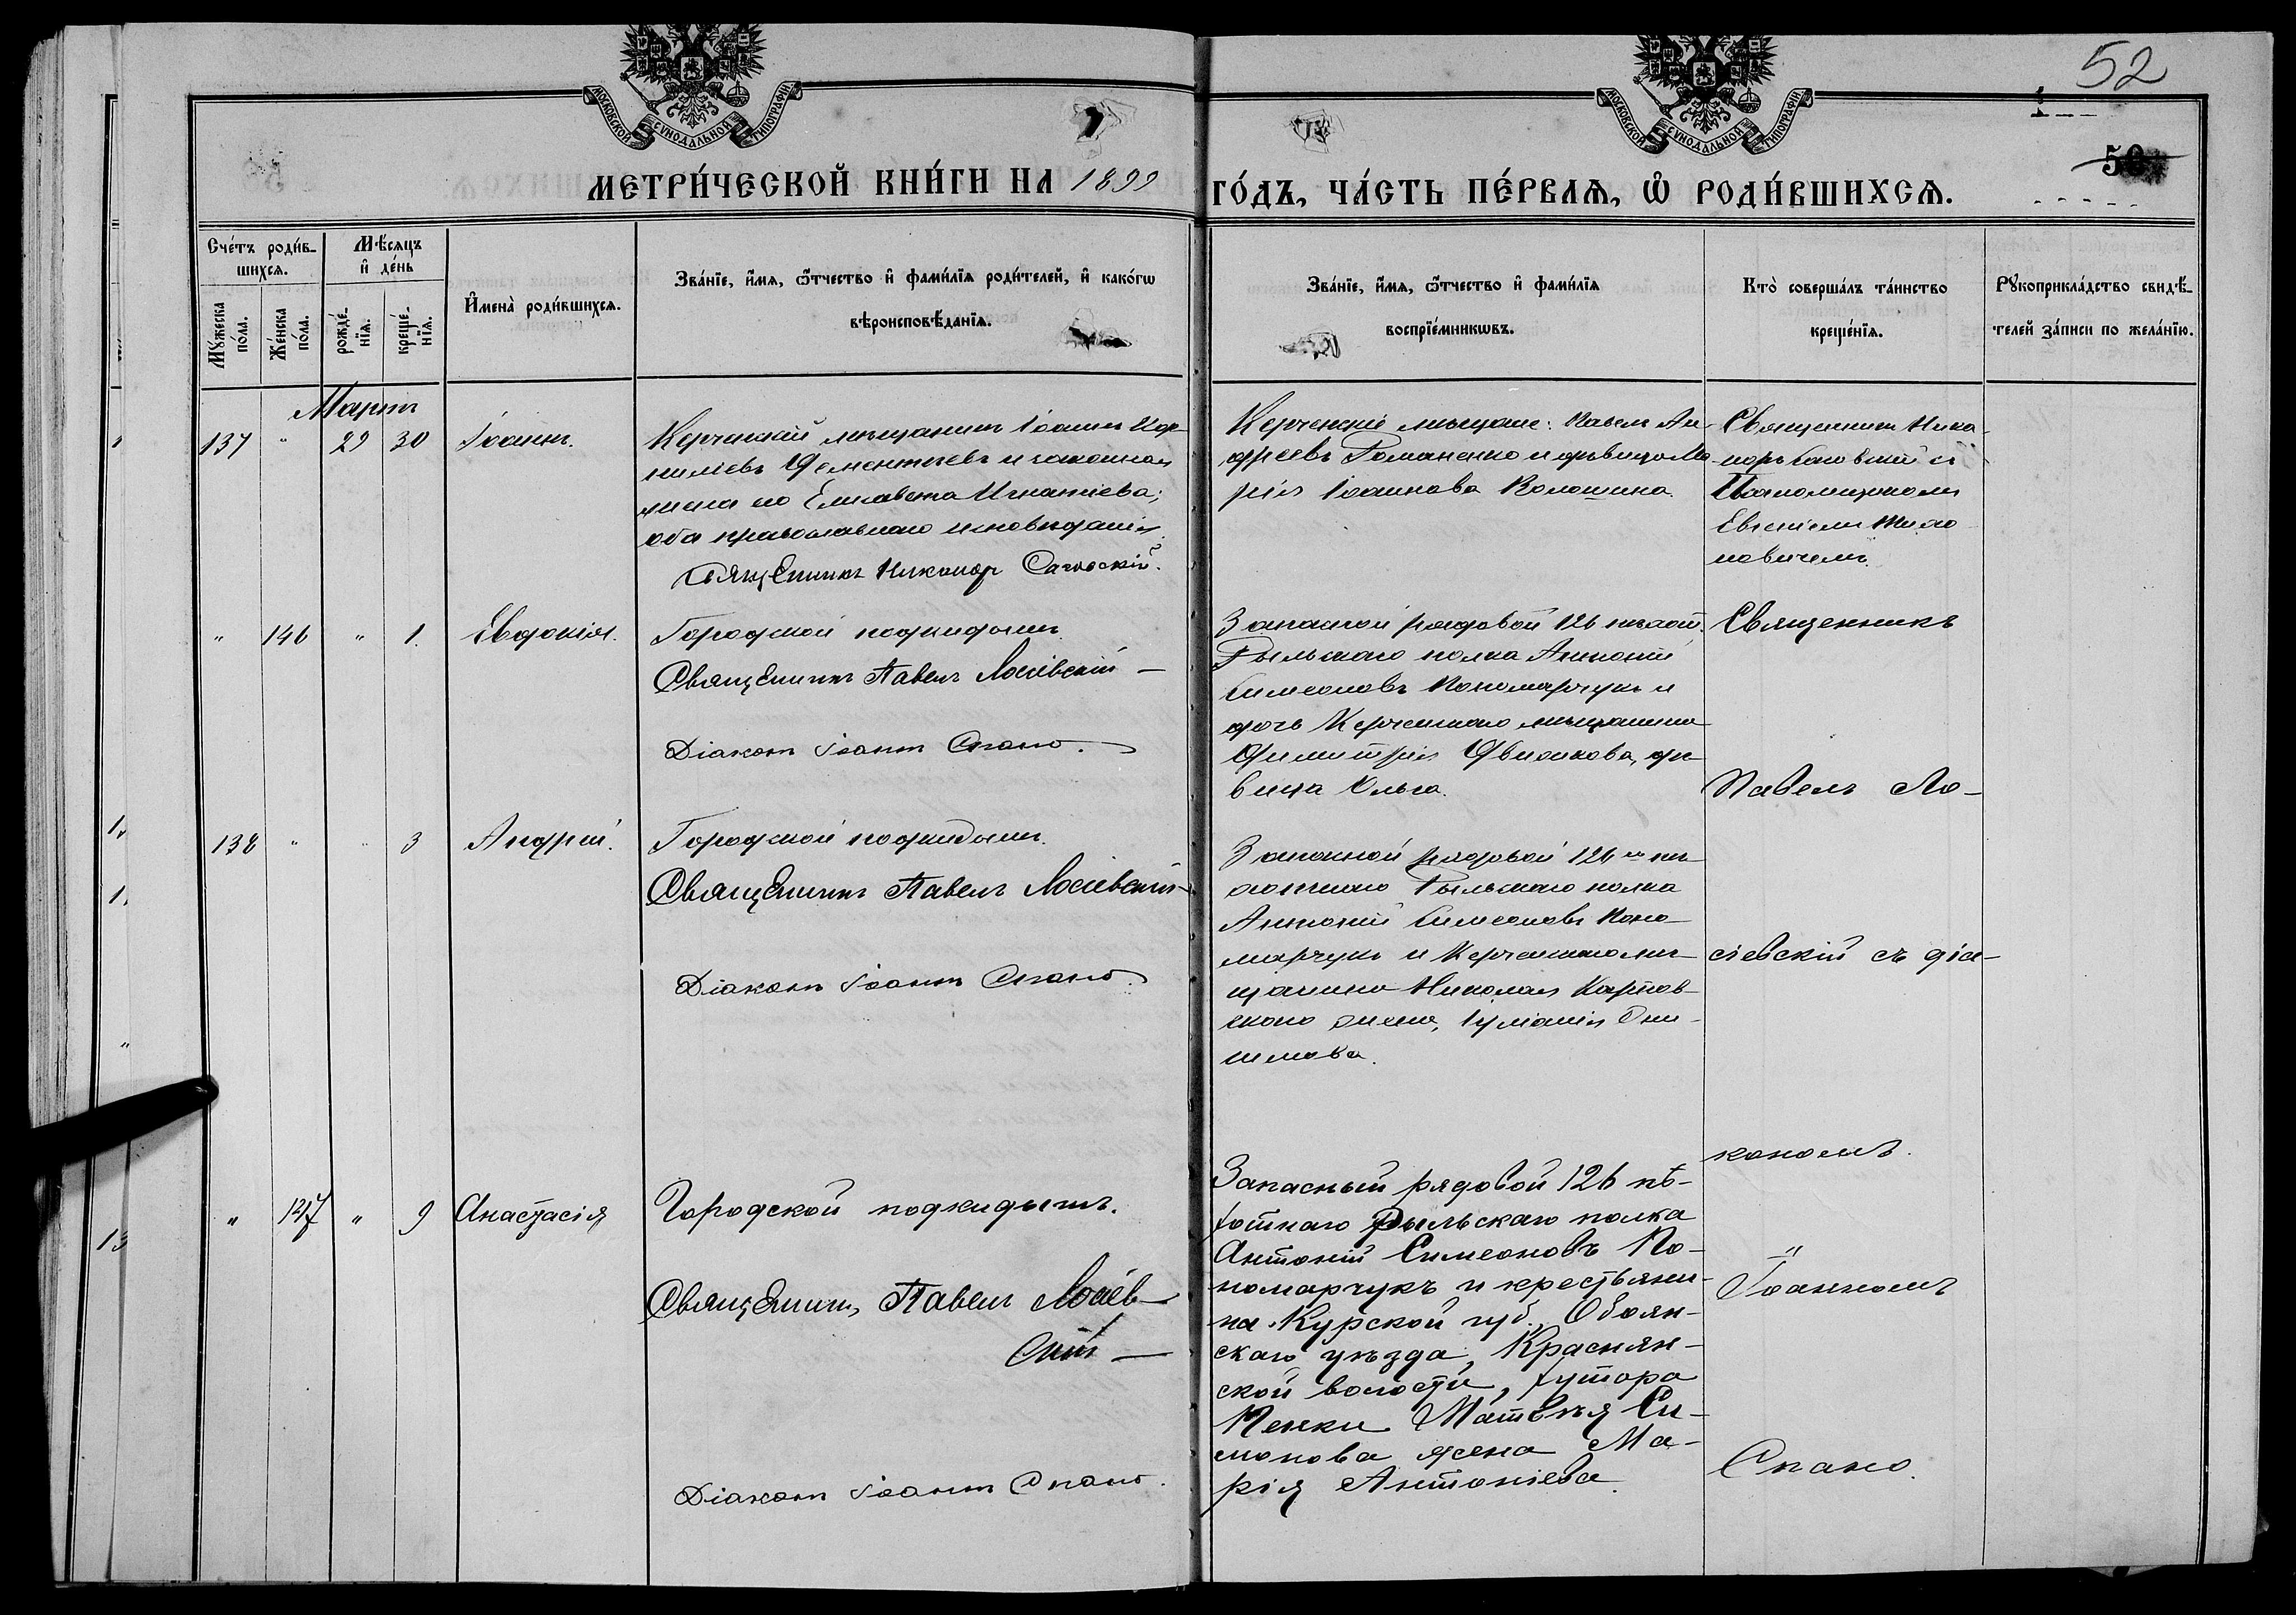 52
МОСКОВСКОЙ СѴНОДАЛЬНОЙ ТИПОГРАФІИ
МОСКОВСКОЙ СѴНОДАЛЬНОЙ ТИПОГРАФІИ
МЕТРИ́ЧЕСКОЙ КНИ́ГИ НА 1899
ГО́ДЪ, ЧА́СТЬ ПЕ́РВАѦ, Ѡ҆ РОДИ́ВШИХСѦ.
Сче́тъ роди́в-
шихсѧ.
Мꙋ́жеска по́ла.
Же́нска по́ла.
Мѣ́сѧцъ
и҆ де́нь
рожде́-
нїѧ.
креще́-
нїѧ.
И҆мена̀ роди́вшихсѧ.
Зва́нїе, и҆́мѧ, ѻ҆́тчество и҆ фами́лїѧ роди́телей, и҆ како́гѡ
вѣроисповѣ́данїѧ.
Зва́нїе, и҆́мѧ, ѻ҆́тчество и҆ фами́лїѧ
воспрїе́мникѡвъ.
Кто̀ соверша́лъ та́инство
креще́нїѧ.
Рꙋкоприкла́дство свидѣ́-
телей за́писи по жела́нїю.
Мартъ
137 " 29 30 Іоаннъ.
Керченскій мѣщанинъ Іоаннъ Кор-
ниліевъ Дементьевъ и законная
жена его Елисавета Игнатіева;
оба православнаго исповѣданія.
Священникъ Никаноръ Саговскій.
Керченскіе мѣщане: Павелъ Ан-
дреевъ Романенко и дѣвица Ма-
рія Іоаннова Волошина.
Священникъ Ника-
норъ Саговскій съ
Псаломщикомъ
Евгеніемъ
новичемъ.
" 146 " 1. Евдокія.
Городской подкидышъ.
Священникъ Павелъ Лосіевскій —
Діаконъ Іоаннъ Спано.
Запасной рядовой 126 пѣхот.
Рыльскаго полка Антоній
Симеоновъ Пономарчукъ и
дочь Керченскаго мѣщанина
Димитрія Двиликова, дѣ-
вица Ольга.
Священникъ
Павелъ Ло-
138 " " 3 Андрей.
Городской подкидышъ.
Священникъ Павелъ Лосіевскій —
Діаконъ Іоаннъ Спано.
Запасной рядовой 126 пѣ-
хотнаго Рыльскаго полка
Антоній Симеоновъ Поно-
марчукъ и Керченскаго мѣ-
щанина Николая Карпов-
скаго жена, Іуліанія Они-
симова.
сіевскій съ діа-
кономъ.
" 147 " 9 Анастасія
Городской подкидышъ.
Священникъ Павелъ Лосіев-
скій —
Діаконъ Іоаннъ Спано.
Запасный рядовой 126 пѣ-
хотнаго Рыльскаго полка
Антоній Симеоновъ По-
номарчукъ и крестьяни-
на Курской губ., Обоян-
скаго уѣзда, Краснян-
ской волости, хутора
Пенки Матвѣя Си-
монова жена Ма-
рія Антоніева.
"
Іоанномъ
Спано.